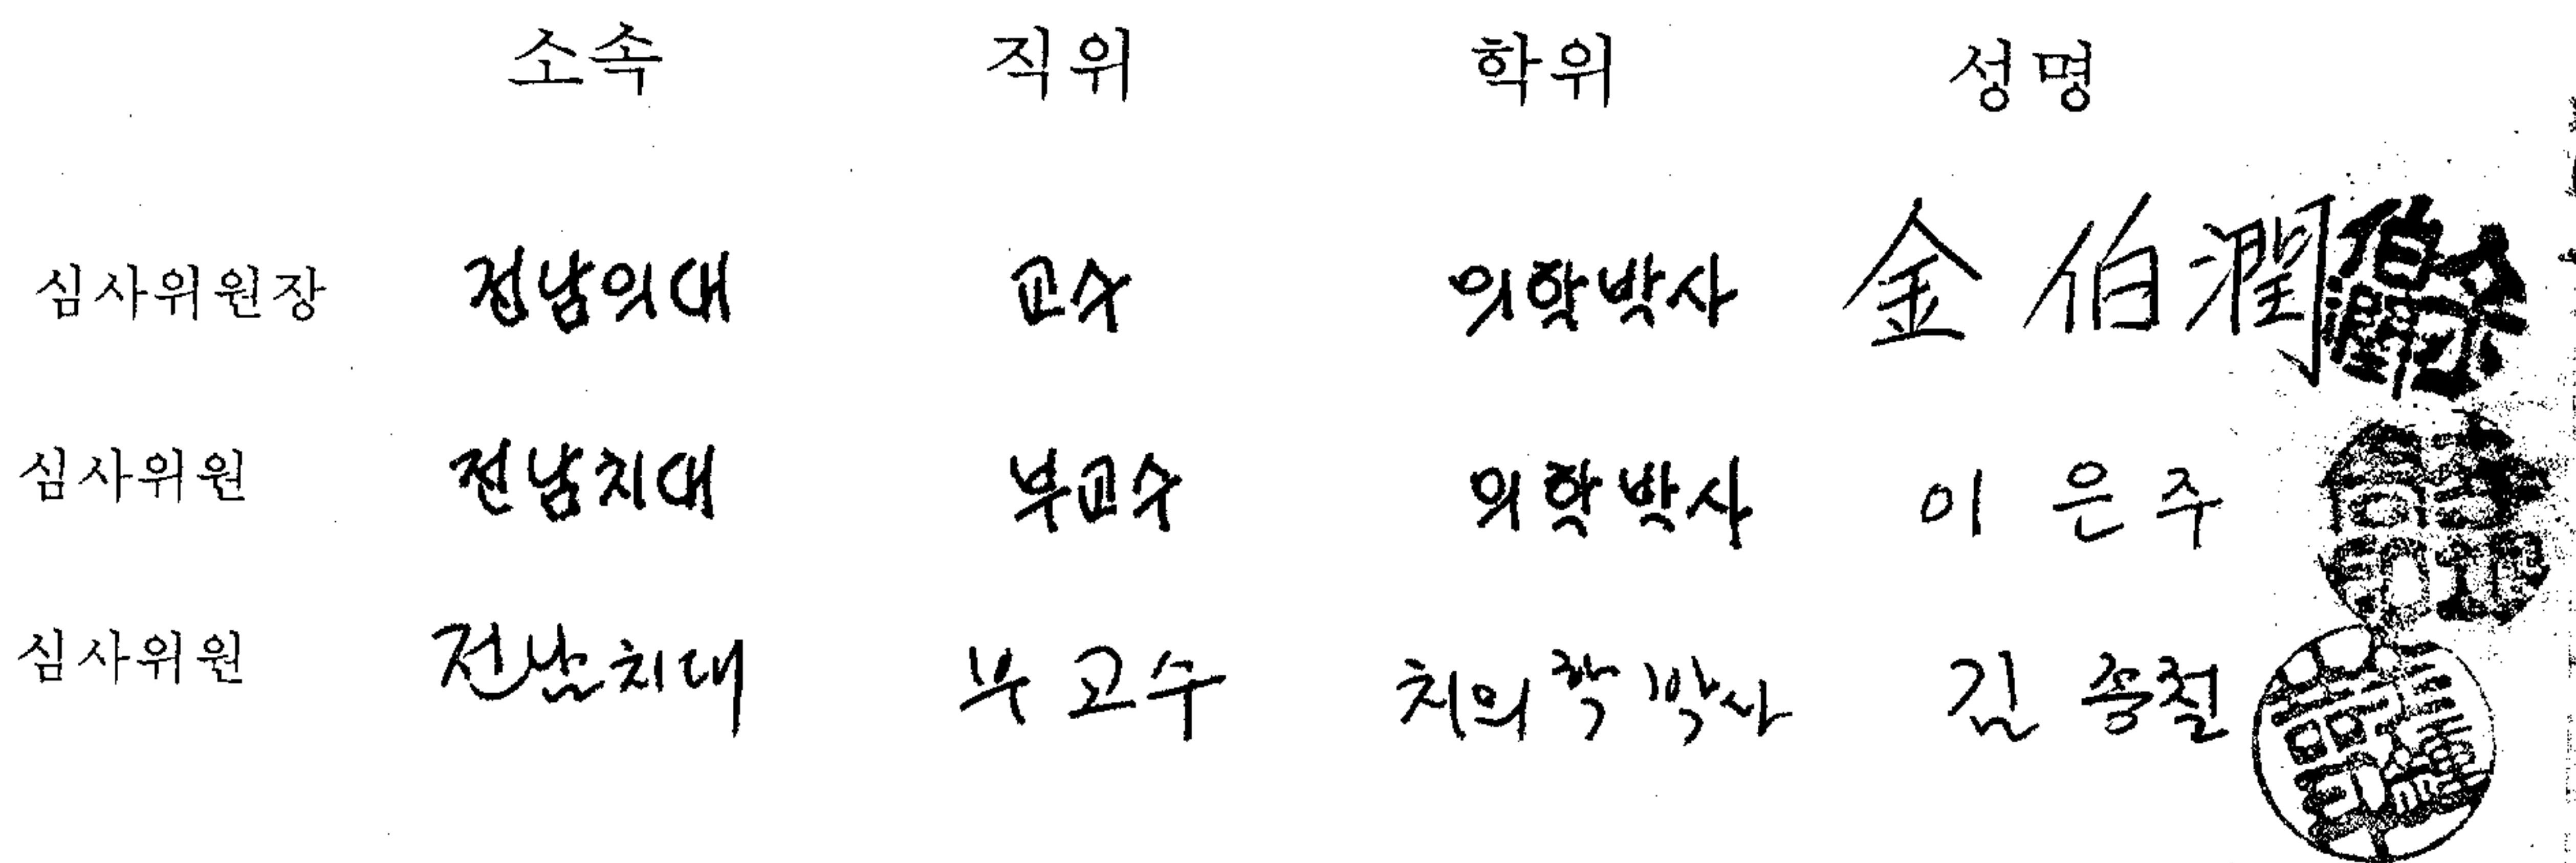 소속 직위 학위 성명
심사위원장 전남의대 교수 의학박사 金伯潤
심사위원 전남치대 부교수 의학박사 이은주
심사위원 전남치대 부교수 치의학박사